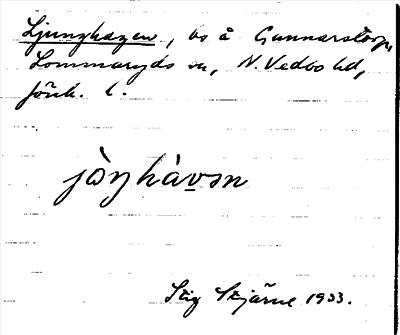 Ljunghagen, bs å Gunnarstorp,
Lommaryds sn, N. Vedbo hd,
Jönk. l.
jòŋhàvən
Stig Stjärne 1933.